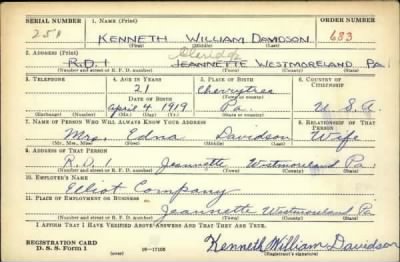 SERIAL NUMBER 1. NAME (Print) ORDER NUMBER
251 KENNETH WILLIAM DAVIDSON 683
(First) (Middle) (Last)
2. ADDRESS (Print)
R.D. 1 JEANNETTE WESTMORELAND PA.
(Number and street or R. F. D. number) (Town) (County) (State)
3. TELEPHONE 4. AGE IN YEARS 5. PLACE OF BIRTH 6. COUNTRY OF CITIZENSHIP
21 Cherrytree
DATE OF BIRTH (Town or county)
April 4, 1919 Pa. U.S.A.
(Exchange) (Number) (Mo.) (Day) (Yr.) (State or country)
7. NAME OF PERSON WHO WILL ALWAYS KNOW YOUR ADDRESS 8. RELATIONSHIP OF THAT PERSON
Mrs. Edna Davidson Wife
(Mr., Mrs., Miss) (First) (Middle) (Last)
9. ADDRESS OF THAT PERSON
R.D. 1 Jeannette Westmoreland Pa.
(Number and street or R. F. D. number) (Town) (County) (State)
10. EMPLOYER'S NAME
Elliot Company
11. PLACE OF EMPLOYMENT OR BUSINESS
Jeannette Westmoreland Pa.
(Number and street or R. F. D. number) (Town) (County) (State)
I AFFIRM THAT I HAVE VERIFIED ABOVE ANSWERS AND THAT THEY ARE TRUE.
REGISTRATION CARD
D. S. S. Form 1 (over) 16-17105 Kenneth William Davidson
(Registrant's signature)